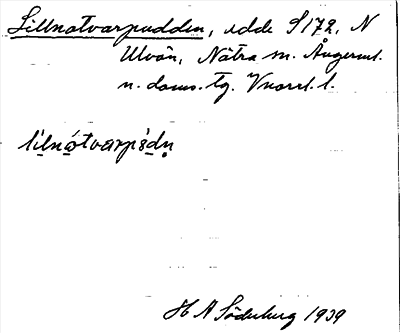 Lillnotvarpudden, udde S172, N
Ulvön, Nätra sn. Ångerml.
n. doms. tg. Vnorrl. l.
lìlnó̱tvarpùdn̥
H A Söderberg 1939